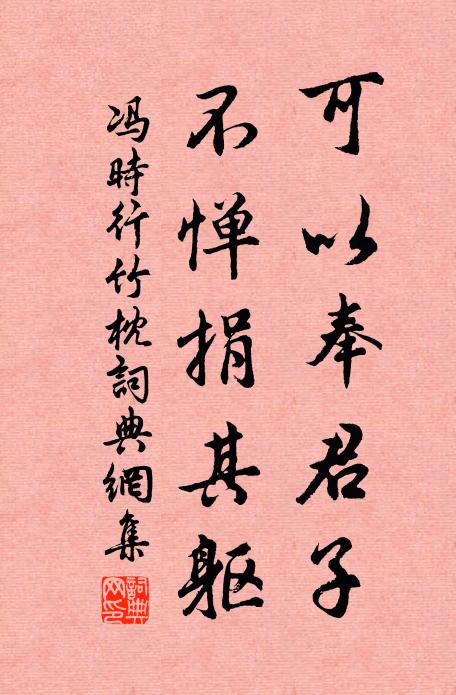 可以奉君子
不惮捐其躯
冯時行竹枕詞典網集
詞典
网印